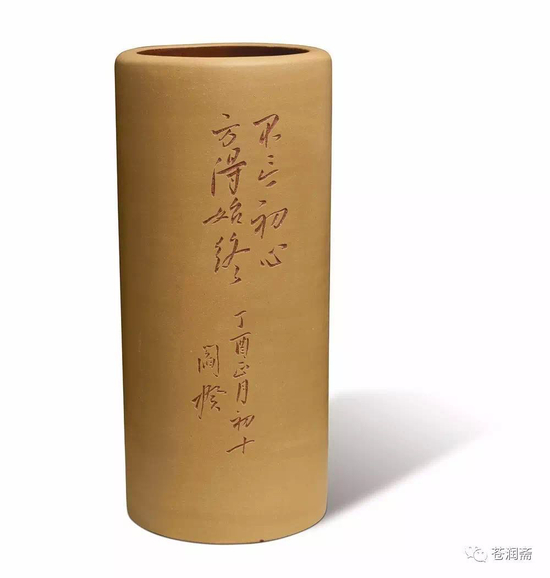 不忘初心
方得始终
丁酉正月初十
阎揆
苍润斋